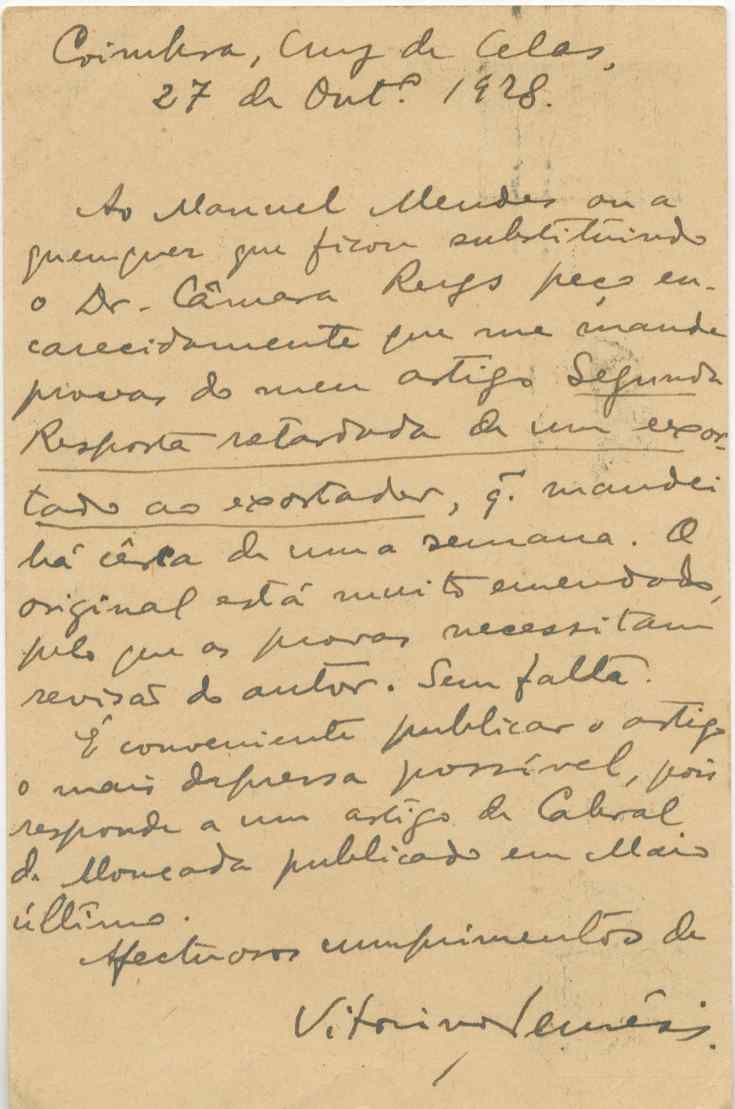 Coimbra, Cruz de Celas,
27 de Out.º 1928.
Ao Manuel Mendes ou a
quemquer que ficou substituindo
o Dr. Câmara Reys peço en-
carecidamente que me mande
provas do meu artigo Segunda
Resposta retardada de um exor-
tado ao exortador, q. mandei
há cêrca de uma semana. O
original está muito emendado,
pelo que as provas necessitam
revisão do autor. Sem falta.
É conveniente publicar o artigo
o mais depressa possível, pois
responde a um artigo de Cabral
de Moncada publicado em Maio
último.
Afectuosos cumprimentos de
Vitorino Nemésio.